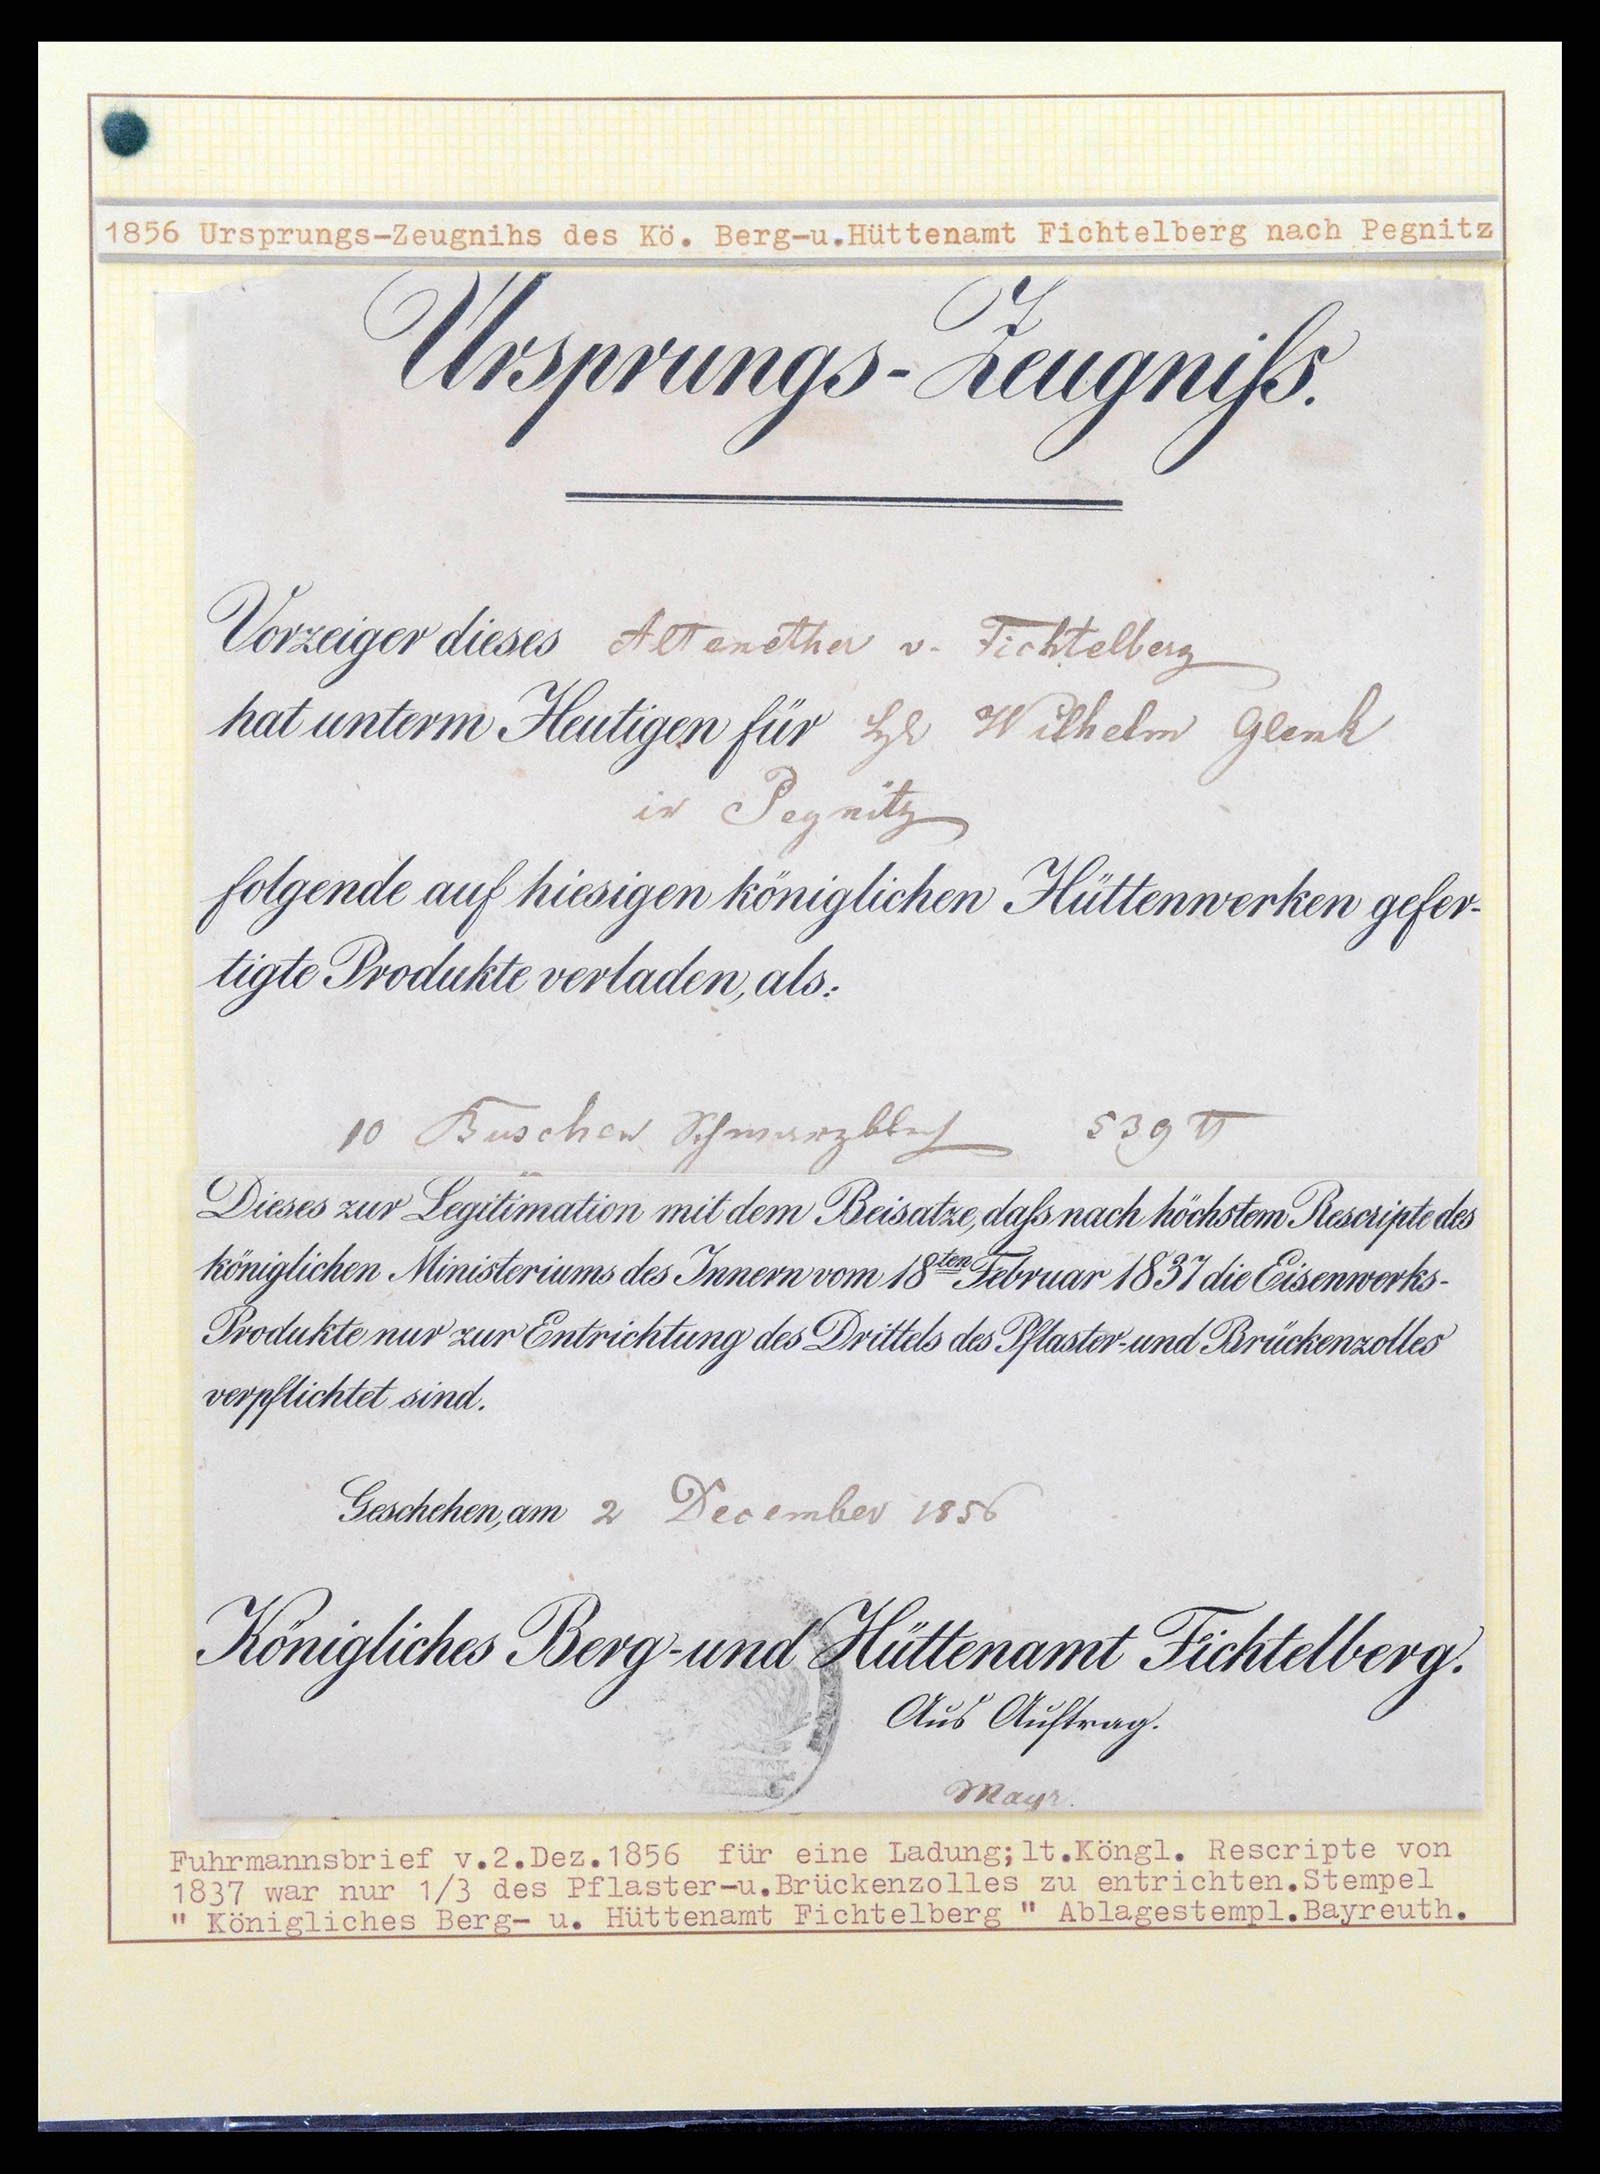 1856 Ursprungs-Zeugnihs des Kö. Berg-u.Hüttenamt Fichtelberg nach Pegnitz
Ursprungs-Zeugniſs.
Vorzeiger dieses v. Fichtelberg
hat unterm Heutigen für Wilhelm Glenk
in Pegnitz
folgende auf hiesigen königlichen Hüttenwerken gefer-
tigte Produkte verladen, als:
10 Buschen Schwarzblech 539 ℔
Dieses zur Legitimation mit dem Beisatze, daſs nach höchstem Rescripte des
königlichen Ministeriums des Innern vom 18ten Februar 1837 die Eisenwerks-
Produkte nur zur Entrichtung des Drittels des Pflaster- und Brückenzolles
verpflichtet sind.
Geschehen, am 2 December 1856
Königliches Berg- und Hüttenamt Fichtelberg.
Aus Auftrag.
Mayr.
Fuhrmannsbrief v.2.Dez.1856 für eine Ladung;lt.Köngl. Rescripte von
1837 war nur 1/3 des Pflaster-u.Brückenzolles zu entrichten.Stempel
" Königliches Berg- u. Hüttenamt Fichtelberg " Ablagestempl.Bayreuth.